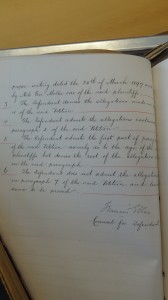 paper writing dated the 24th of March 1897
by the said plaintiff
3. The Defendant denies the allegations contained
of the said Petition
4. The Defendant admits the allegations contained
paragraph 4 of the said Petition
5. The Defendant admits the first part of para
of the said Petition namely as to the age of
Plaintiffs but denies the rest of the allegations
in the said paragraph
6. The Defendant does not admit the allegations
in paragraph 7 of the said Petition and
same to be proved
Counsel for Defendant